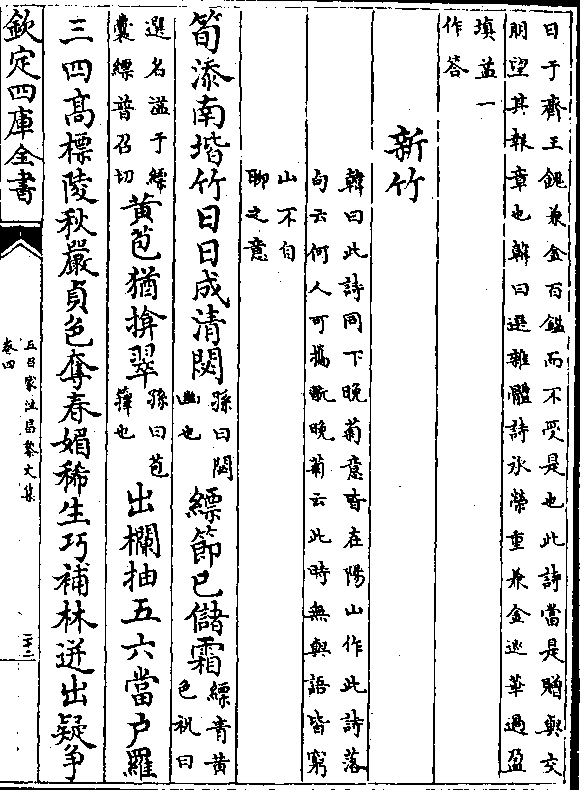 日于齊王餽兼金百鎰而不受是也此詩當是贈與交
朋望其報章也韓曰選雜體詩氷榮重兼金巡華過盈
填葢一
作答
新竹
韓曰此詩同下晚菊意皆在陽山作此詩落
句云何人可攜翫晚菊云此時無與語皆窮
山不自
聊之意
筍添南堦竹日日成清閟孫曰閟幽也縹節已儲霜縹青黄色祝曰
選名謐于縹囊縹普召切黄苞猶揜翠孫曰苞籜也出欄抽五六當户羅
三四高標陵秋嚴貞色奪春媚稀生巧補林迸出疑争
欽定四庫全書
五百家注昌黎文集
卷四
二十二